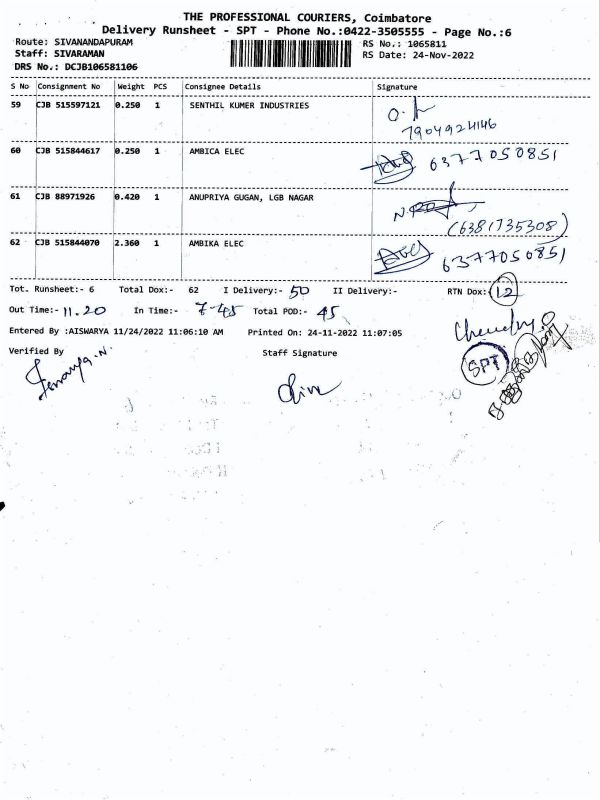 THE PROFESSIONAL COURIERS, Coimbatore
Delivery Runsheet - SPT - Phone No.:0422-3505555 - Page No.:6
Route: SIVANANDAPURAM
RS No.: 1065811
Staff: SIVARAMAN
RS Date: 24-Nov-2022
DRS No.: DCJB106581106
S No Consignment No Weight PCS Consignee Details Signature
59 CJB 515597121 0.250 1 SENTHIL KUMER INDUSTRIES
7904924146
60 CJB 515844617 0.250 1 AMBICA ELEC 6377050851
61 CJB 88971926 0.420 1 ANUPRIYA GUGAN, LGB NAGAR
(6381735308)
62 CJB 515844070 2.360 1 AMBIKA ELEC
6377050851
Tot. Runsheet:- 6 Total Dox:- 62 I Delivery:- 50 II Delivery:- RTN Dox: 12
Out Time:- 11.20 In Time:- 7-45 Total POD:- 45
Entered By :AISWARYA 11/24/2022 11:06:10 AM Printed On: 24-11-2022 11:07:05
Verified By Staff Signature
SPT